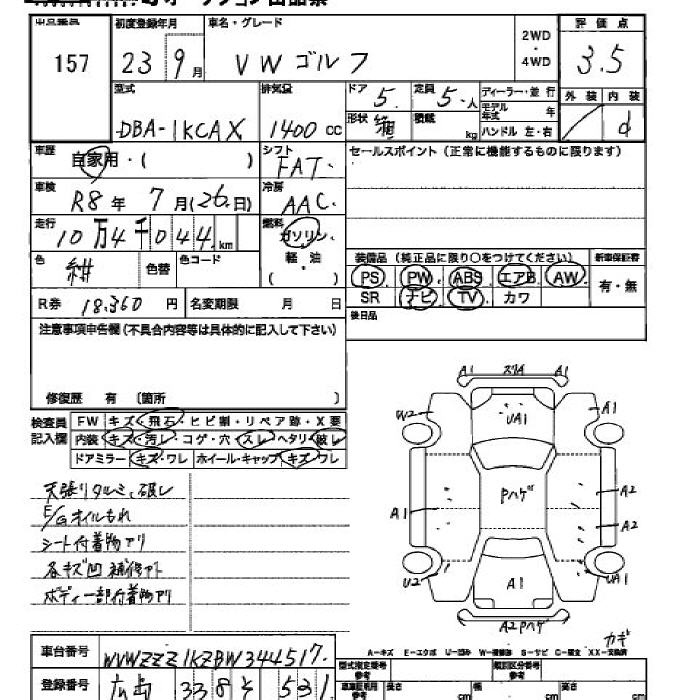 出品票
157
初度登録年月 車名・グレード
23 9月 VW ゴルフ
2WD・4WD
評価点
3.5
型式 排気量 ドア 定員 ディーラー・並行
DBA-1KCAX 1400cc 5 5人
モデル年式 年
形状 箱 積載 kg ハンドル 左・右
外装 内装
d
車歴 自家用・( )
シフト FAT
セールスポイント(正常に機能するものに限ります)
車検 R8年 7月(26日)
冷房 AAC
走行 10万4千044km
燃料 ガソリン・軽油 ( )
色 紺 色替 色コード
装備品(純正品に限り○をつけてください) 新車保証書
PS PW ABS エアB AW 有・無
SR ナビ TV カワ
R券 18,360円 名変期限 月 日
後日品
注意事項申告欄(不具合内容等は具体的に記入して下さい)
修復歴 有 〔箇所 〕
検査員記入欄
FW キズ・飛石・ヒビ割・リペア跡・X要
内装 キズ・汚レ・コゲ・穴・スレ・ヘタリ・破レ
ドアミラー キズ・ワレ ホイール・キャップ キズ・ワレ
天張りタルミ、破レ
E/Gオイルもれ
シート付着物アリ
各キズ凹補修アト
ボディー部付着物アリ
A1 スリA A1
W2 UA1 A1
Pハゲ
A1 A2
A2
U2 A1 UA1
A2 Pハゲ
カギ
A-キズ E-エクボ U-凹み W-補修跡 S-サビ C-腐食 XX-交換済
車台番号 WVWZZZ1KZBW344517
登録番号 広島 338 そ 531
型式指定番号 参考 類別区分番号 参考
長さ cm 幅 cm 高さ cm